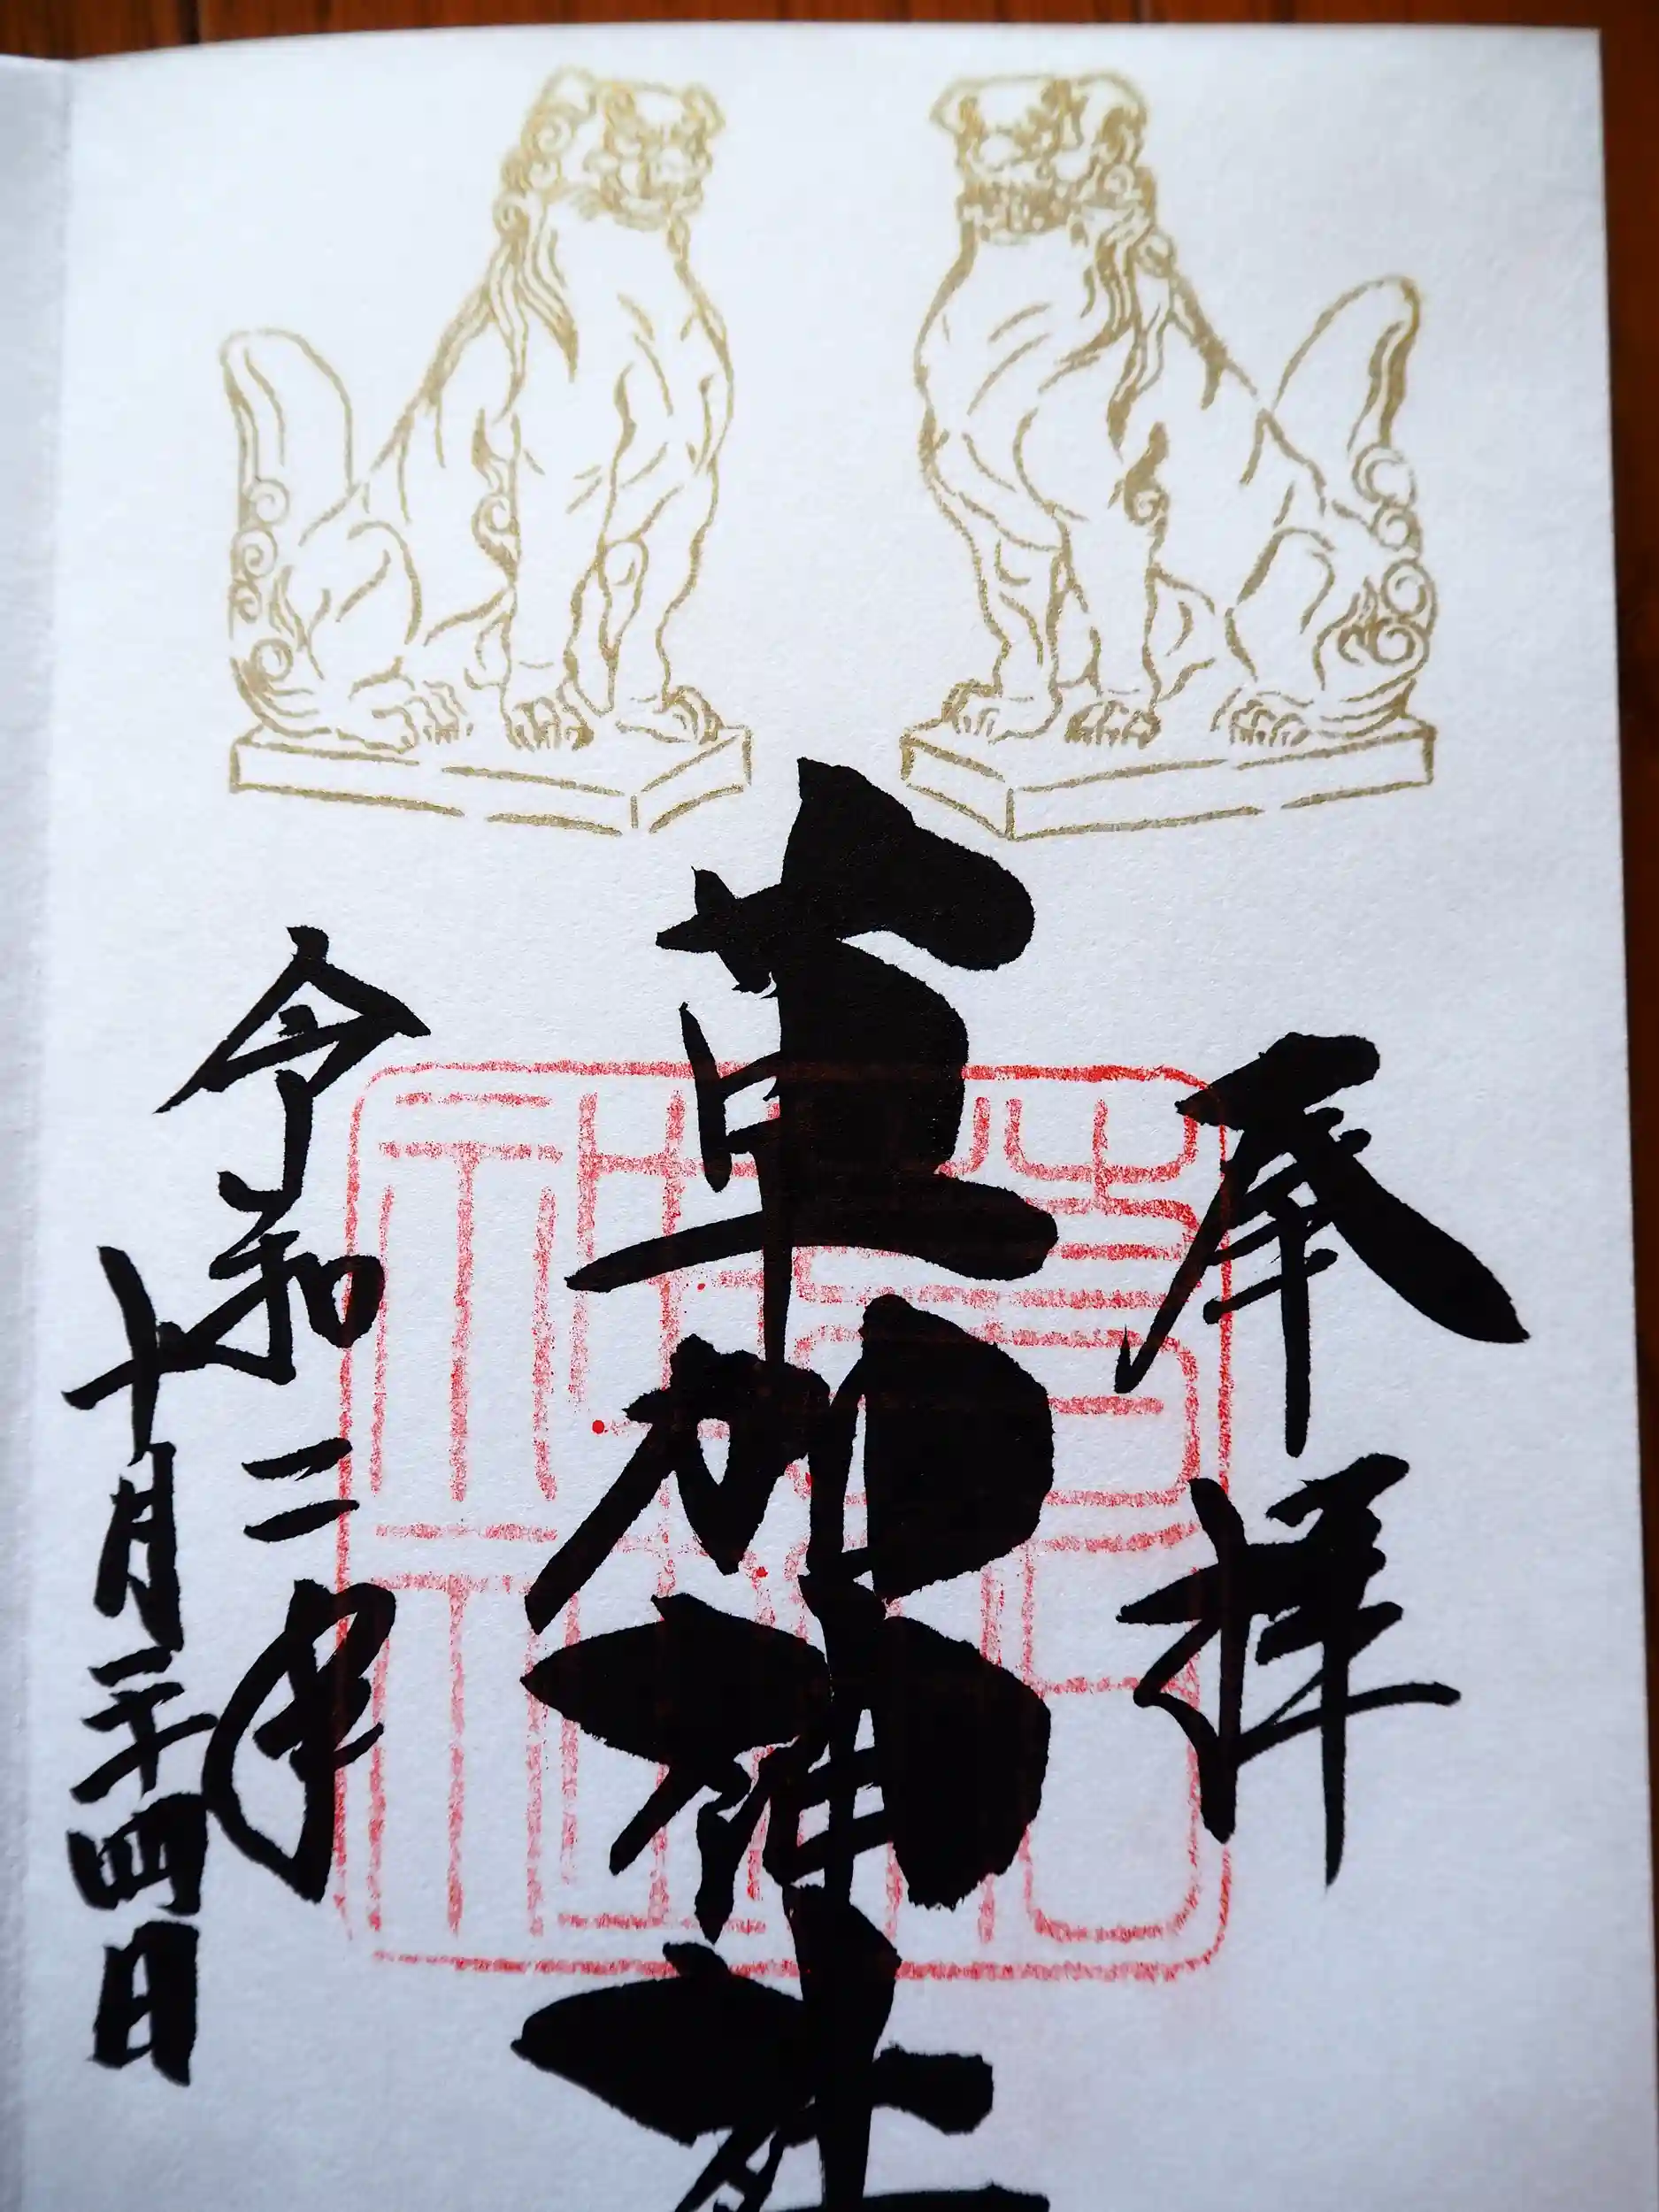 奉拝
草加神社
令和二年
十月二十四日